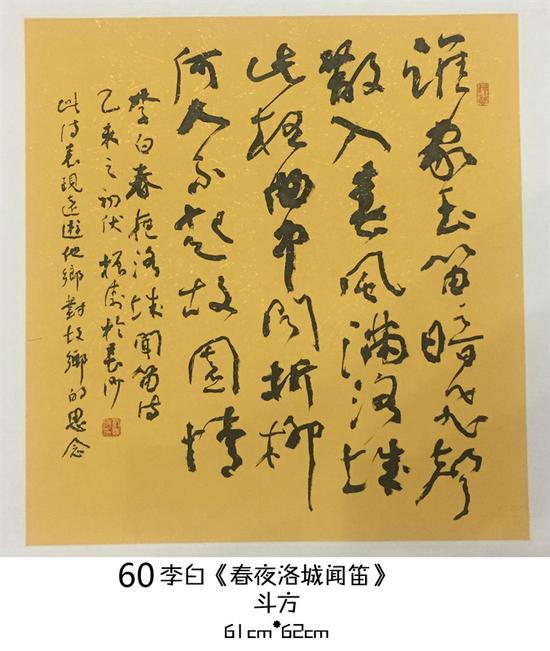 誰家玉笛暗飛聲
散入春風滿洛城
此夜曲中聞折柳
何人不起故園情
李白春夜洛城聞笛詩
乙未之初伏 於長沙
此詩表現遠遊他鄉對故鄉的思念
60 李白《春夜洛城闻笛》
斗方
61cm*62cm